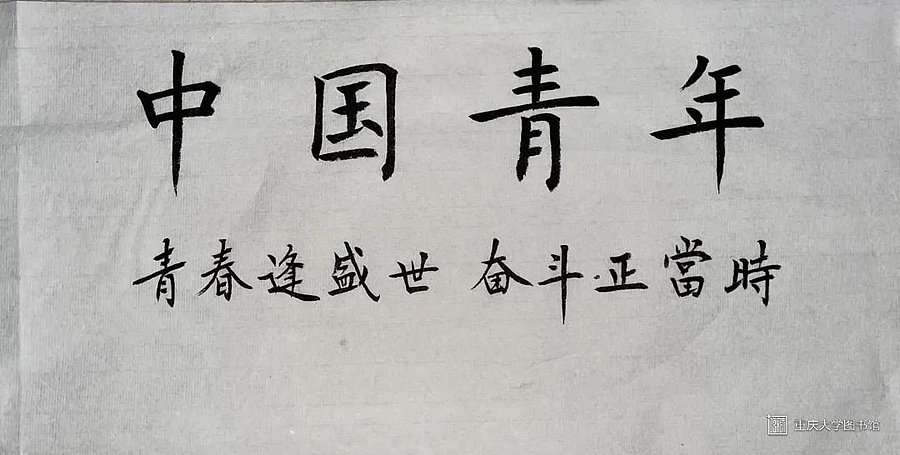 中国青年
青春逢盛世 奋斗正當時
重庆大学图书馆